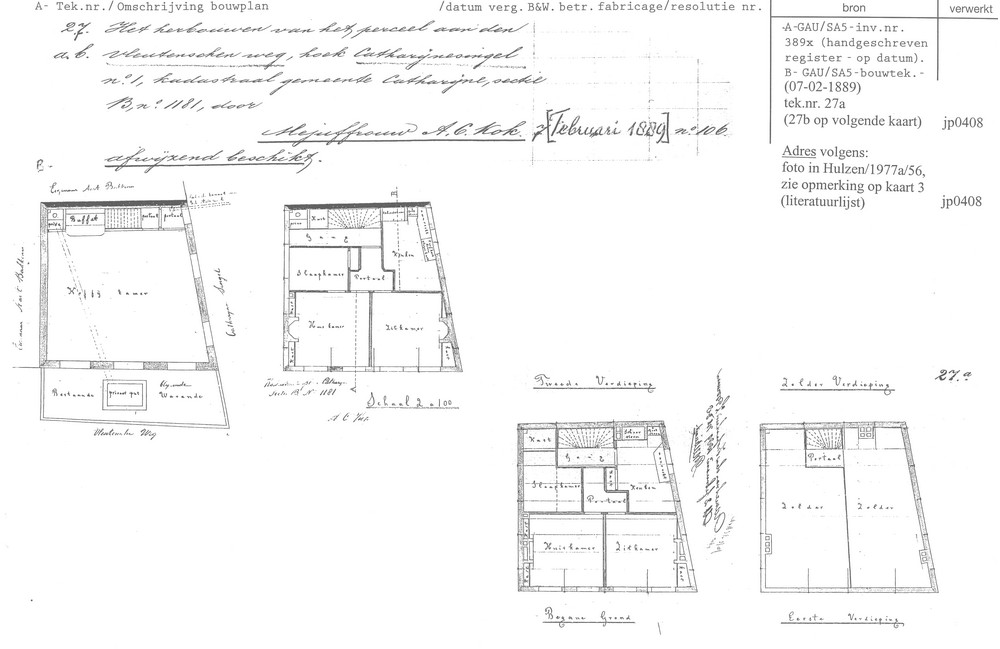 A- Tek.nr./Omschrijving bouwplan /datum verg. B&W. betr. fabricage/resolutie nr.
bron
verwerkt
27. Het herbouwen van het perceel aan den
a.b. Vleutenschen weg, hoek Catharijnesingel
no. 1, kadastraal gemeente Catharijne, sectie
B, no. 1181, door
Mejuffrouw A. C. Kok. 7 [Februari 1889] no. 106.
afwijzend beschikt.
A-GAU/SA5-inv.nr.
389x (handgeschreven
register - op datum).
B- GAU/SA5-bouwtek.-
(07-02-1889)
tek.nr. 27a
(27b op volgende kaart) jp0408
Adres volgens:
foto in Hulzen/1977a/56,
zie opmerking op kaart 3
(literatuurlijst) jp0408
B-
Buffet
portaal
portaal
Koffij kamer
Bestaande
privaat put
Waranda
Vleutensche Weg
Catharijne Singel
Kast
Gang
Slaapkamer
Portaal
Keuken
Huiskamer
Zitkamer
Kast
Sectie B No 1181
Schaal 2 a 100
A C Kok
Tweede Verdieping
Zolder Verdieping
27.a
Kast
Gang
Slaapkamer
Portaal
Keuken
Huiskamer
Zitkamer
Kast
Portaal
Zolder
Zolder
Begane Grond
Eerste Verdieping